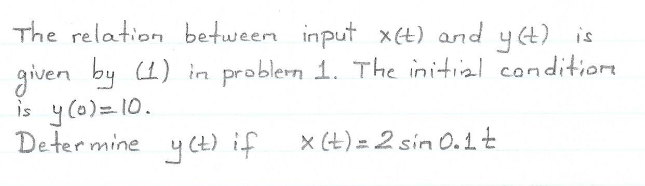 The relation between input x(t) and y(t) is
given by (1) in problem 1. The initial condition
is y(0)=10.
Determine y(t) if x(t)=2 sin 0.1t